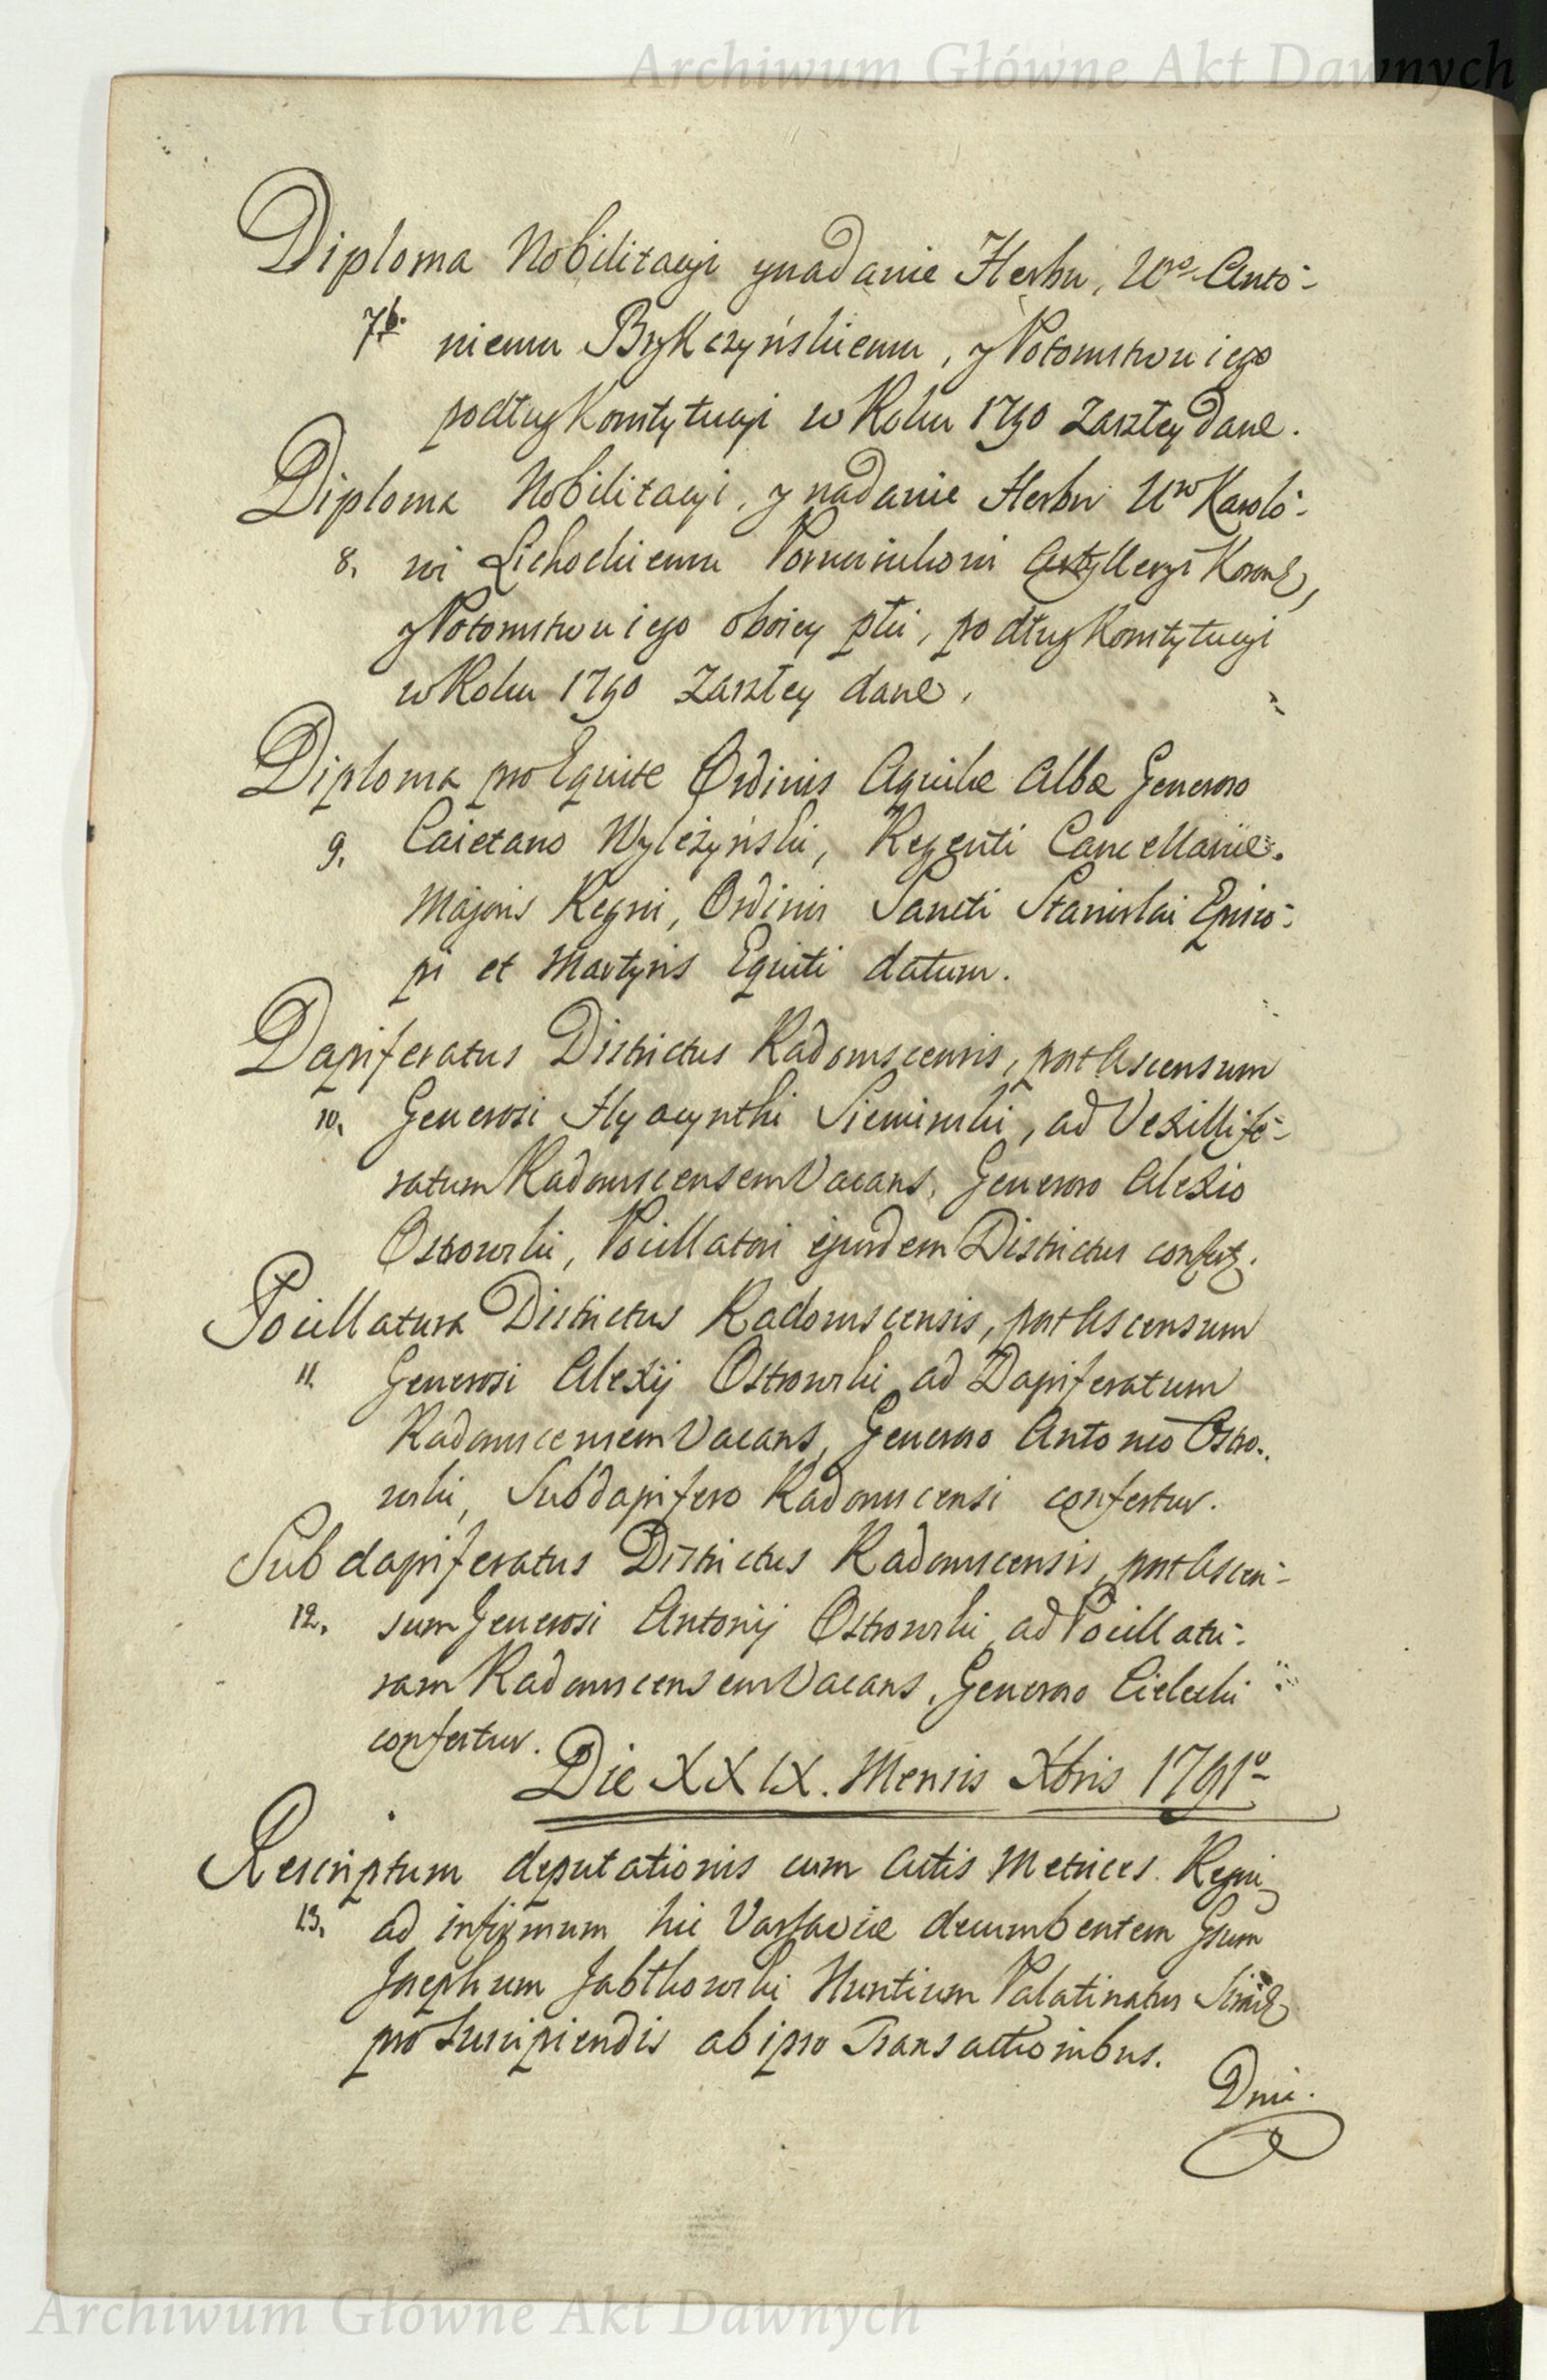 Archiwum Główne Akt Dawnych
Diploma Nobilitacyi y nadanie Herbu, Uro Anto-
7. niemu Brykczyńskiemu, y Potomstwu iego
podług Konstytucyi w Roku 1790 zaszłey dane.
Diploma Nobilitacyi, y nadanie Herbu Uro Karolo-
8. wi Lichockiemu Porucznikowi Artylleryi Koron:,
y Potomstwu iego oboiey płci, podług Konstytucyi
w Roku 1790 zaszłey dane.
Diploma pro Equite Ordinis Aquilæ Albæ Generoso
9. Caietano Wyleżyński, Regenti Cancellariæ.
Majoris Regni, Ordinis Sancti Stanislai Episco-
pi et Martyris Equiti datum.
Dapiferatus Districtus Radomscensis, post Ascensum
10. Generosi Hyacynthi Siemieński, ad Vexillife-
ratum Radomscensem Vacans, Generoso Alexio
Ostrowski, Pocillatori ejusdem Districtus confert:.
Pocillatura Districtus Radomscensis, post Ascensum
11. Generosi Alexij Ostrowski ad Dapiferatum
Radomscensem Vacans, Generoso Antonio Ostro-
wski, Subdapifero Radomscensi confertur.
Subdapiferatus Districtus Radomscensis, post Ascen-
12. sum Generosi Antonij Ostrowski, ad Pocillatu-
ram Radomscensem Vacans, Generoso Cielecki
confertur.
Die XXIX. Mensis Xbris 1791o
Rescriptum deputationis cum Actis Metrices Regni
13. ad infirmum hic Varsaviæ decumbentem Gsum
Josephum Jabłkowski Nuntium Palatinatus Sirad:
pro suscipiendis ab ipso Transactionibus.
Dnie.
Archiwum Główne Akt Dawnych